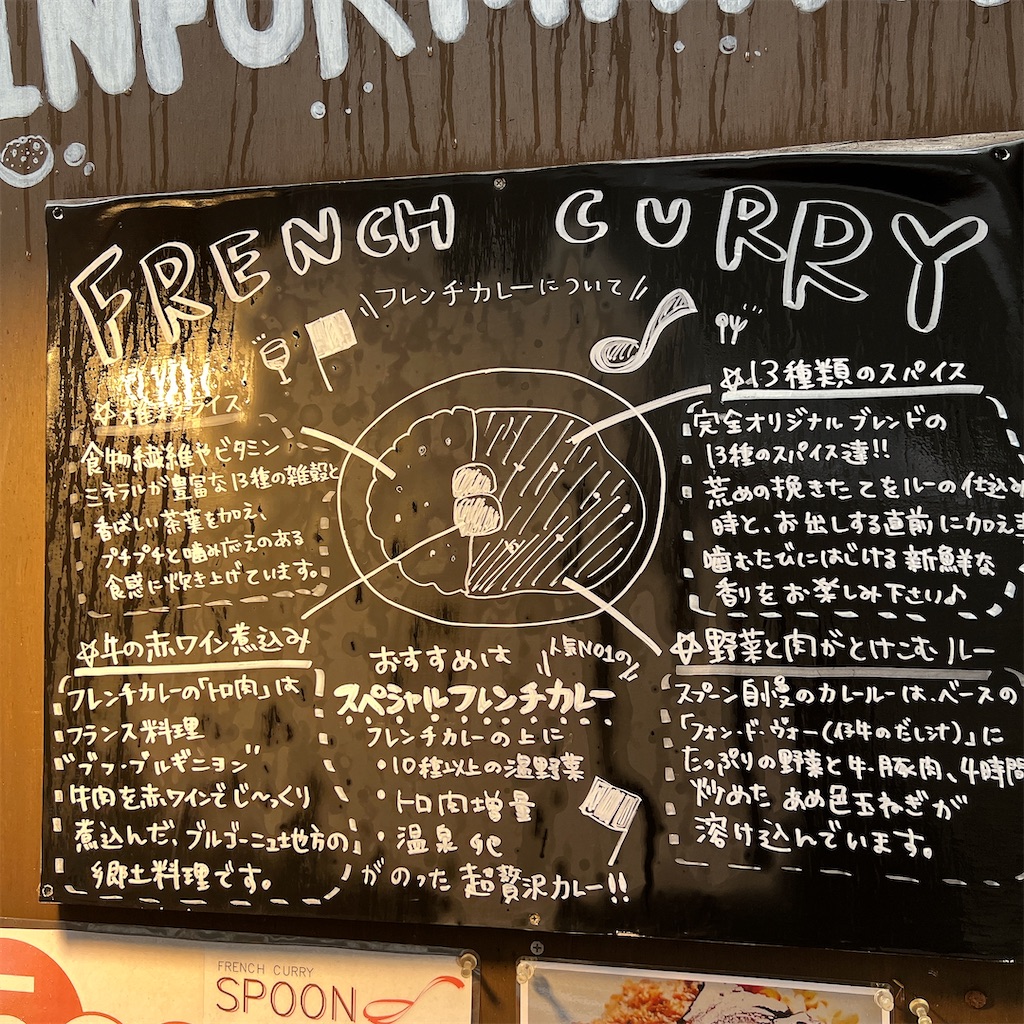 FRENCH CURRY
\\フレンチカレーについて//
食物繊維やビタミン
ミネラルが豊富な13種の雑穀と
香ばしい茶葉を加え、
プチプチと噛み応えのある
食感に炊き上げています。
☆牛の赤ワイン煮込み
フレンチカレーの「トロ肉」は
フランス料理
"ブフ・ブルギニヨン"
牛肉を赤ワインでじ〜っくり
煮込んだ、ブルゴーニュ地方の
郷土料理です。
おすすめは
\\人気NO1の//
スペシャルフレンチカレー
フレンチカレーの上に
・10種以上の温野菜
・トロ肉増量
・温泉
がのった超贅沢カレー!!
☆13種類のスパイス
完全オリジナルブレンドの
13種のスパイス達!!
荒めの挽きたてをルーの仕込み
時と、お出しする直前に加えま
噛むたびにはじける新鮮な
香りをお楽しみ下さい♪
☆野菜と肉がとけこむルー
スプーン自慢のカレールーは、ベースの
「フォン・ド・ヴォー(仔牛のだし汁)」に
たっぷりの野菜と牛・豚肉、4時間
炒めたあめ色玉ねぎが
溶け込んでいます。
FRENCH CURRY
SPOON